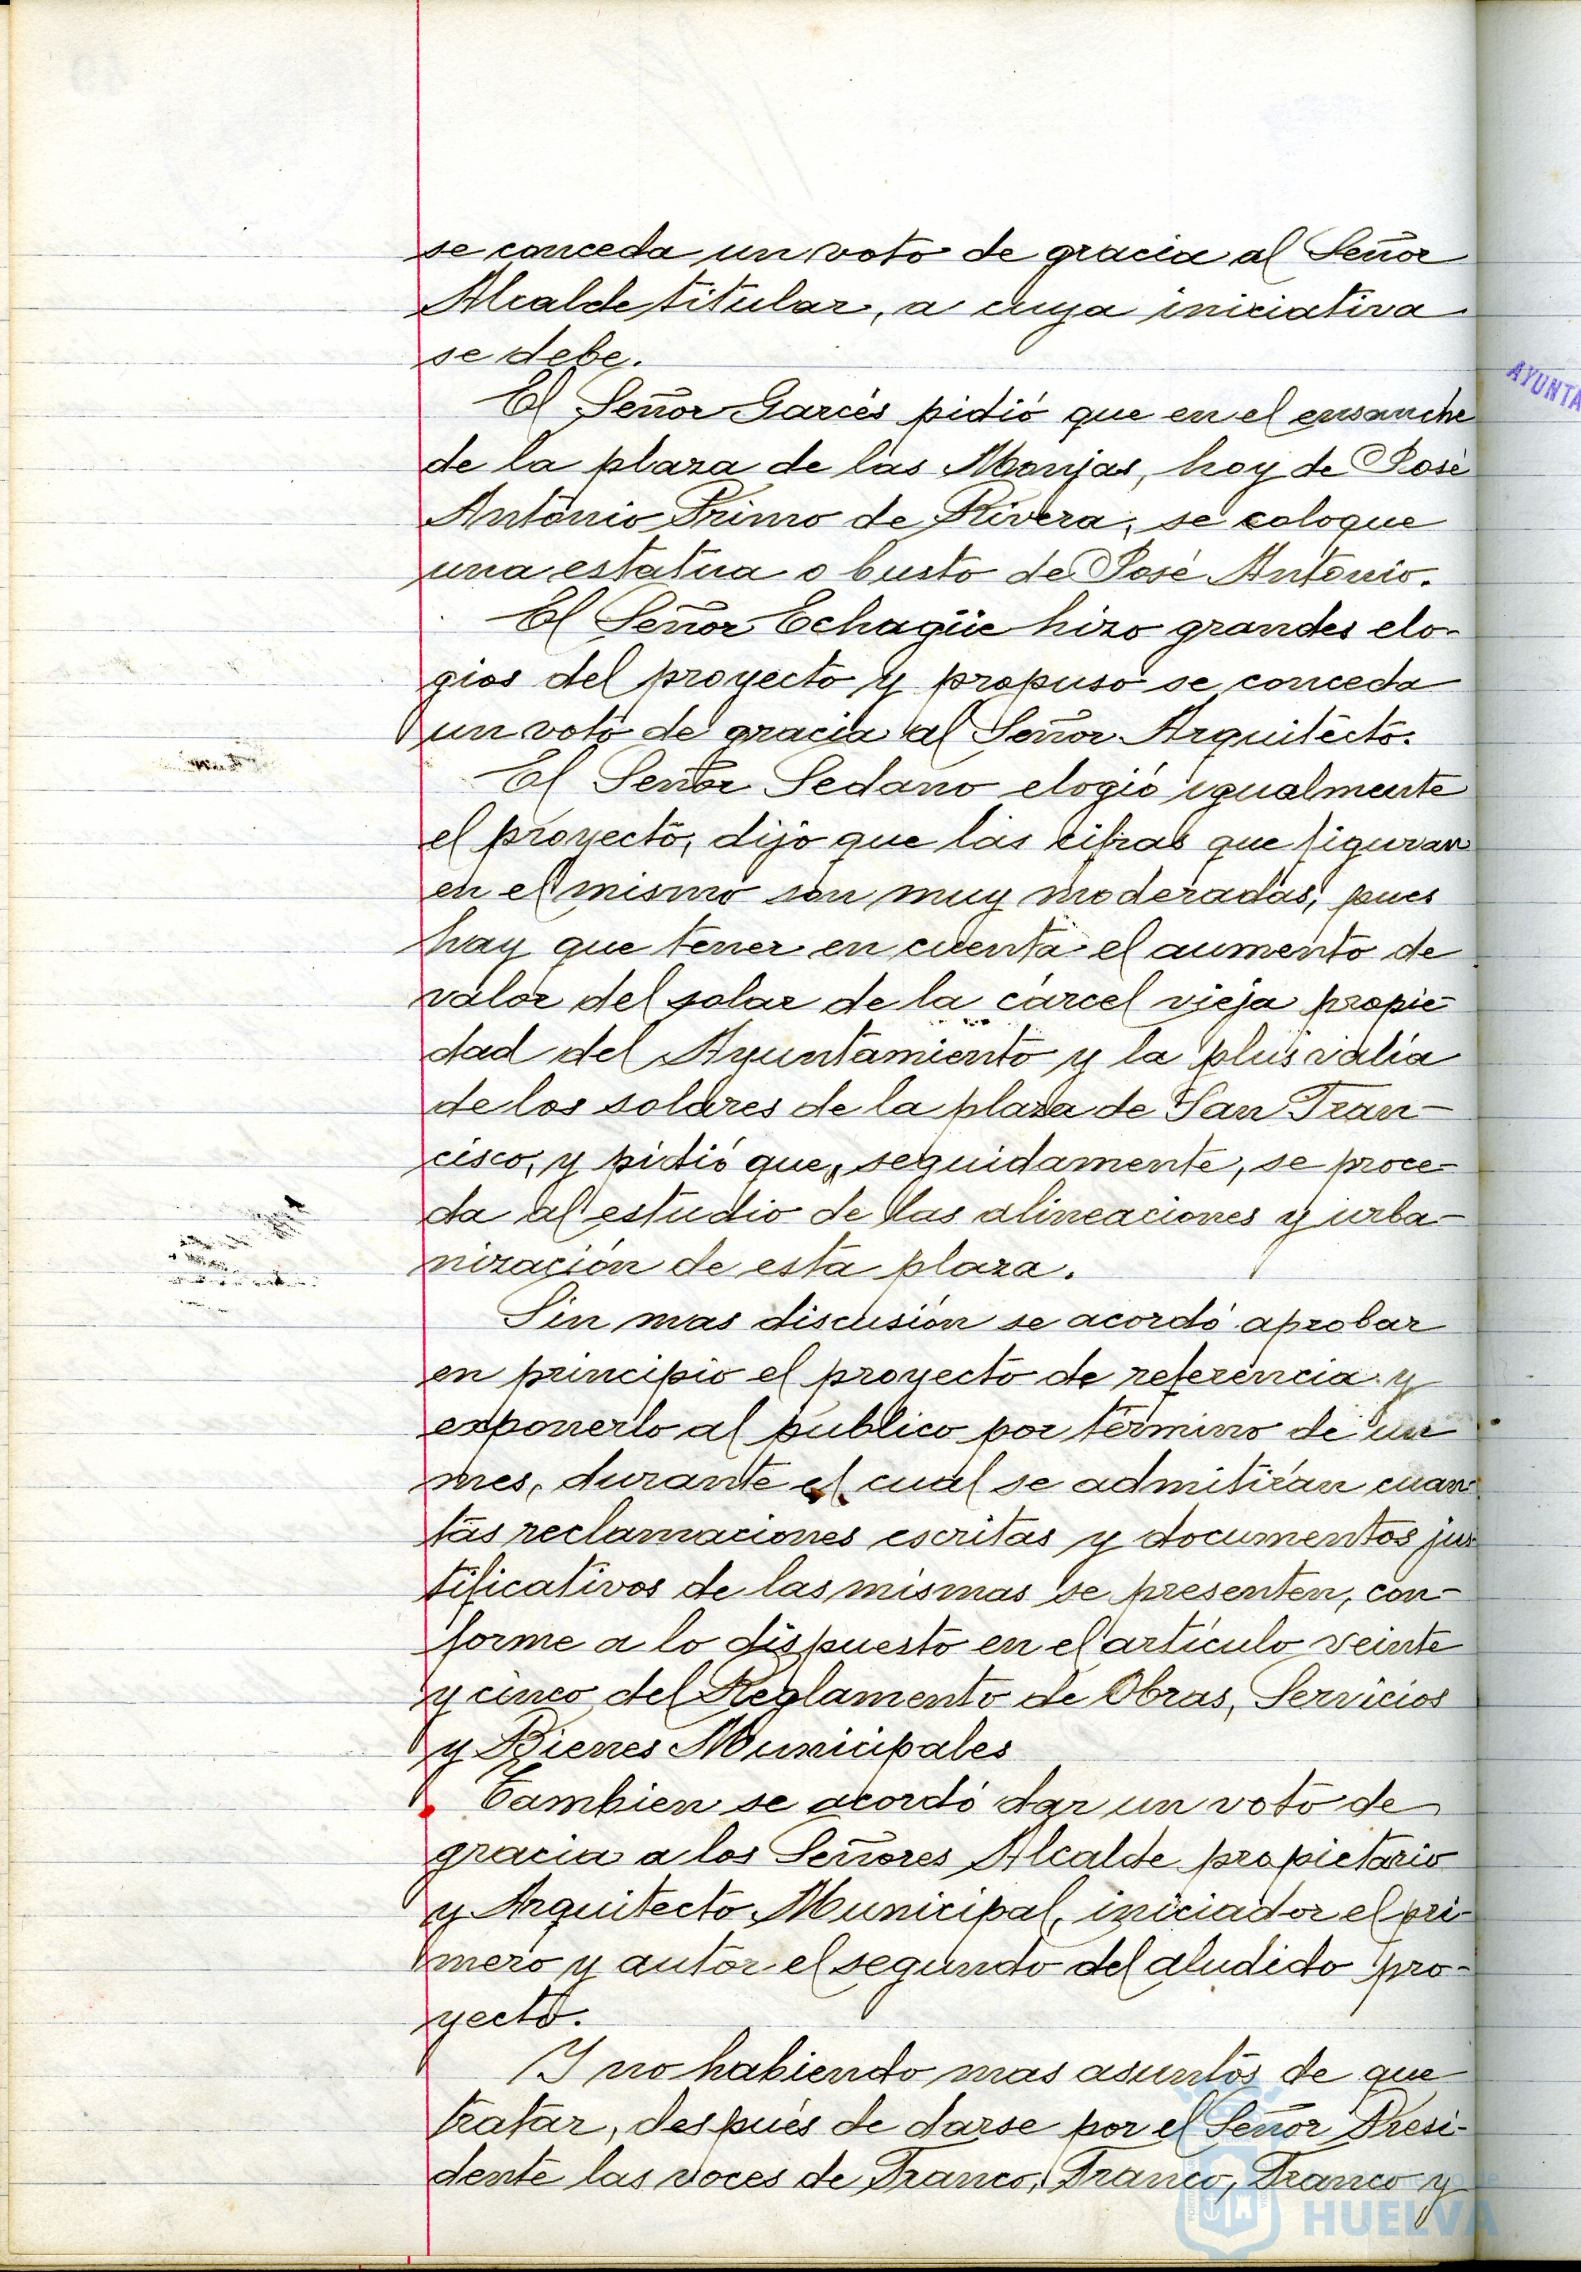 se conceda un voto de gracia al Señor
Alcalde titular, a cuya iniciativa
se debe.
El Señor Garcés pidió que en el ensanche
de la plaza de las Monjas, hoy de José
António Primo de Rivera, se coloque
una estatua o busto de José António.
El Señor Echagüe hizo grandes elo-
gios del proyecto y propuso se conceda
un voto de gracia al Señor Arquitecto.
El Señor Sedano elogió igualmente
el proyecto, dijo que las cifras que figuran
en el mismo son muy moderadas, pues
hay que tener en cuenta el aumento de
valor del solar de la cárcel vieja propie-
dad del Ayuntamiento y la plus valía
de los solares de la plaza de San Fran-
cisco, y pidió que, seguidamente, se proce-
da al estudio de las alineaciones y urba-
nización de esta plaza.
Sin mas discusión se acordó aprobar
en principio el proyecto de referencia y
exponerlo al publico por término de un
mes, durante el cual se admitirán cuan-
tas reclamaciones escritas y documentos jus
tificativos de las mismas se presenten, con-
forme a lo dispuesto en el artículo veinte
y cinco del Reglamento de Obras, Servicios
y Bienes Municipales
Tambien se acordó dar un voto de
gracia a los Señores Alcalde propietario
y Arquitecto Municipal, iniciador el pri-
mero y autor el segundo del aludido pro-
yecto.
Y no habiendo mas asuntos de que
tratar, después de darse por el Señor Presi-
dente las voces de Franco, Franco, Franco y
AYUNTA
HUELVA